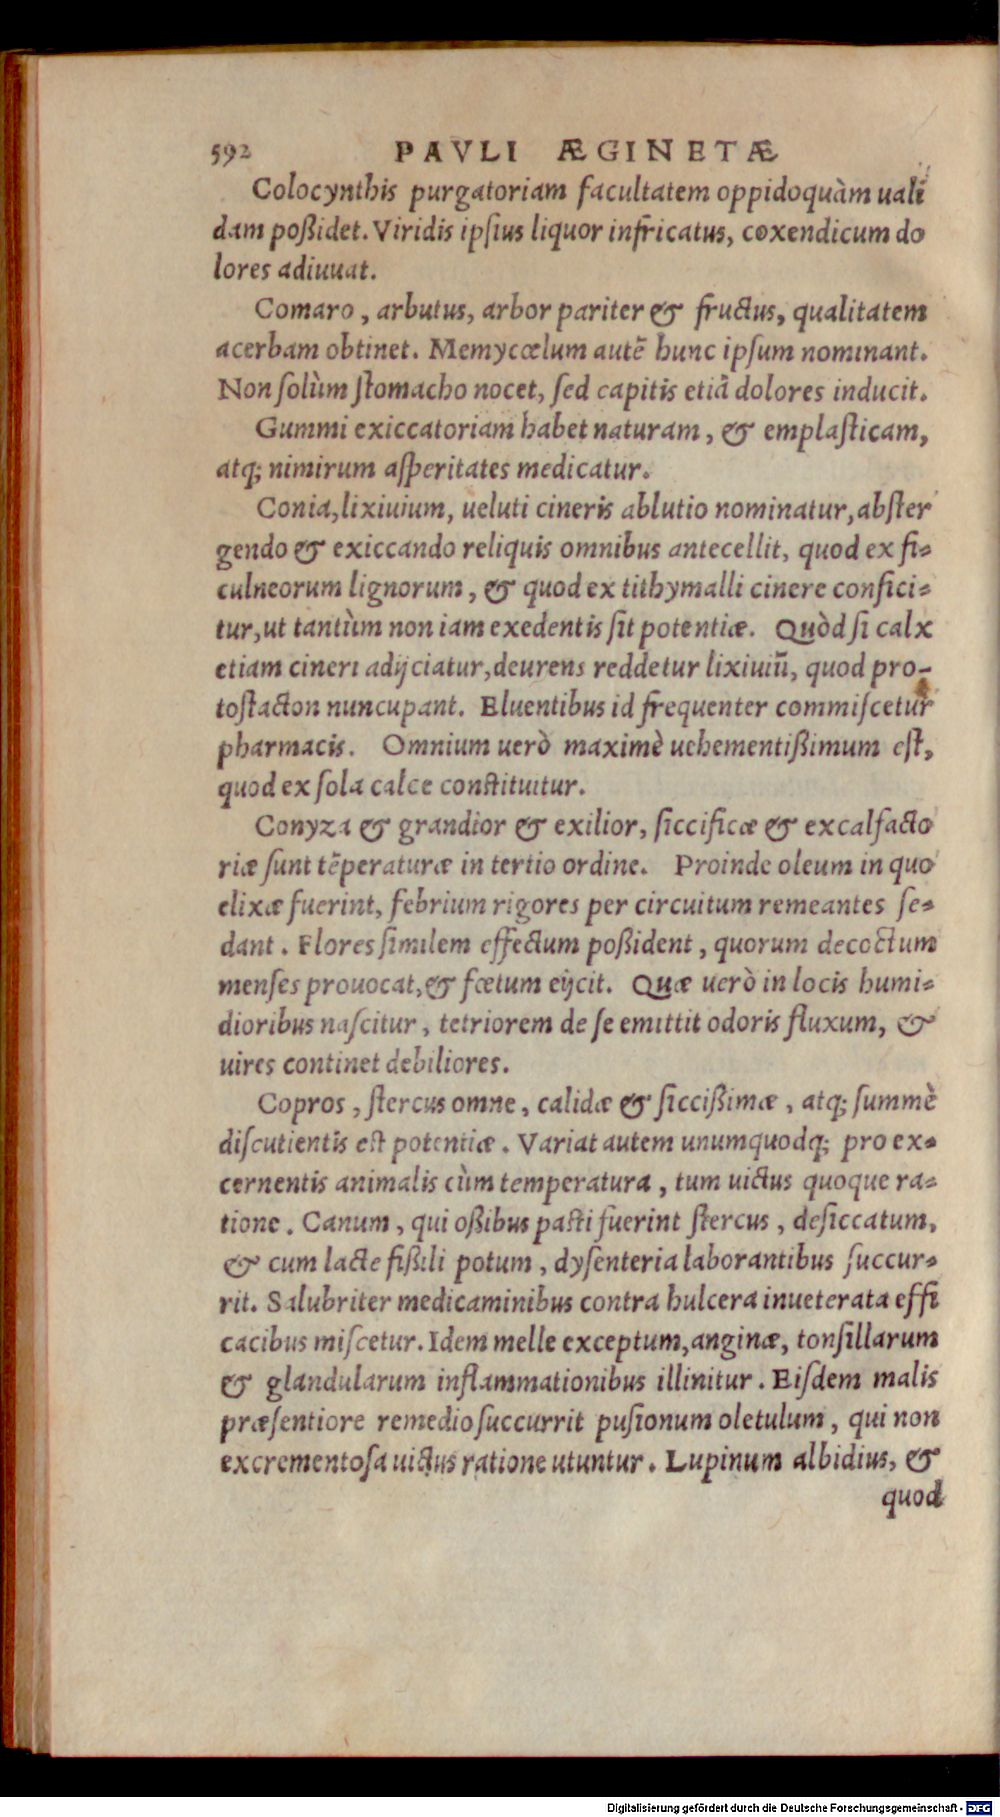 592 PAVLI ÆGINETÆ
Colocynthis purgatoriam facultatem oppidoquàm uali
dam poßidet. Viridis ipſius liquor infricatus, coxendicum do
lores adiuuat.
Comaro, arbutus, arbor pariter & fructus, qualitatem
acerbam obtinet. Memycœlum autẽ hunc ipſum nominant.
Non ſolùm ſtomacho nocet, ſed capitis etiã dolores inducit.
Gummi exiccatoriam habet naturam, & emplaſticam,
atq; nimirum aſperitates medicatur.
Conia, lixiuium, ueluti cineris ablutio nominatur, abſter
gendo & exiccando reliquis omnibus antecellit, quod ex fi-
culneorum lignorum, & quod ex tithymalli cinere confici-
tur, ut tantùm non iam exedentis ſit potentiæ. Quòd ſi calx
etiam cineri adijciatur, deurens reddetur lixiuiũ, quod pro-
toſtacton nuncupant. Eluentibus id frequenter commiſcetur
pharmacis. Omnium uerò maximè uehementißimum eſt,
quod ex ſola calce conſtituitur.
Conyza & grandior & exilior, ſiccificæ & excalfacto
riæ ſunt tẽperaturæ in tertio ordine. Proinde oleum in quo
elixæ fuerint, febrium rigores per circuitum remeantes ſe-
dant. Flores ſimilem effectum poßident, quorum decoctum
menſes prouocat, & fœtum eijcit. Quæ uerò in locis humi-
dioribus naſcitur, tetriorem de ſe emittit odoris fluxum, &
uires continet debiliores.
Copros, ſtercus omne, calidæ & ſiccißimæ, atq; ſummè
diſcutientis eſt potentiæ. Variat autem unumquodq; pro ex-
cernentis animalis cùm temperatura, tum uictus quoque ra-
tione. Canum, qui oßibus paſti fuerint ſtercus, deſiccatum,
& cum lacte fißili potum, dyſenteria laborantibus ſuccur-
rit. Salubriter medicaminibus contra hulcera inueterata effi
cacibus miſcetur. Idem melle exceptum, anginæ, tonſillarum
& glandularum inflammationibus illinitur. Eiſdem malis
præſentiore remedio ſuccurrit puſionum oletulum, qui non
excrementoſa uictus ratione utuntur. Lupinum albidius, &
quod
Digitalisierung gefördert durch die Deutsche Forschungsgemeinschaft - DFG